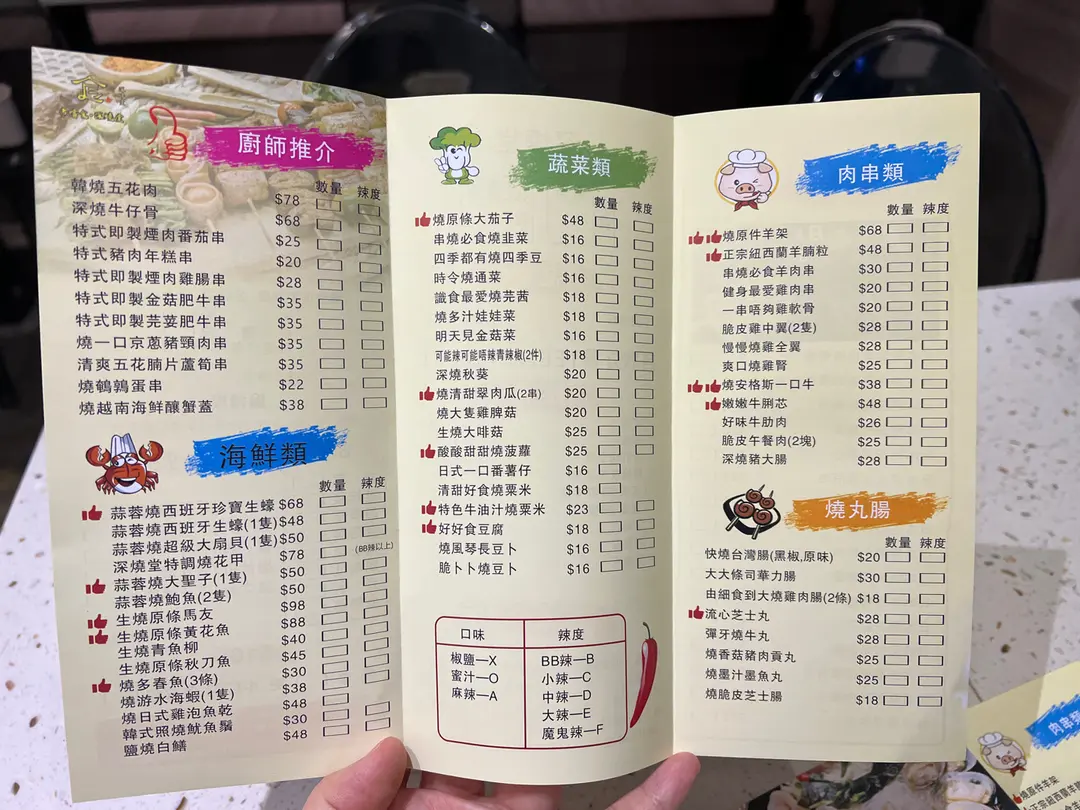 廚師推介
數量 辣度
韓燒五花肉 $78
深燒牛仔骨 $68
特式即製煙肉番茄串 $25
特式豬肉年糕串 $20
特式即製煙肉雞腸串 $28
特式即製金菇肥牛串 $35
特式即製芫荽肥牛串 $35
燒一口京蔥豬頸肉串 $35
清爽五花腩片蘆筍串 $35
燒鵪鶉蛋串 $22
燒越南海鮮釀蟹蓋 $38
海鮮類
數量 辣度
蒜蓉燒西班牙珍寶生蠔 $68
蒜蓉燒西班牙生蠔(1隻) $48
蒜蓉燒超級大扇貝(1隻) $50
深燒堂特調燒花甲 $78 (BB辣以上)
蒜蓉燒大聖子(1隻) $50
蒜蓉燒鮑魚(2隻) $50
生燒原條馬友 $98
生燒原條黃花魚 $88
生燒青魚柳 $40
生燒原條秋刀魚 $45
燒多春魚(3條) $30
燒游水海蝦(1隻) $38
燒日式雞泡魚乾 $48
韓式照燒魷魚鬚 $30
鹽燒白鱔 $48
蔬菜類
數量 辣度
燒原條大茄子 $48
串燒必食燒韭菜 $16
四季都有燒四季豆 $16
時令燒通菜 $16
識食最愛燒芫茜 $18
燒多汁娃娃菜 $18
明天見金菇菜 $16
可能辣可能唔辣青辣椒(2件) $18
深燒秋葵 $20
燒清甜翠肉瓜(2串) $20
燒大隻雞脾菇 $20
生燒大啡菇 $25
酸酸甜甜燒菠蘿 $25
日式一口番薯仔 $16
清甜好食燒粟米 $18
特色牛油汁燒粟米 $23
好好食豆腐 $18
燒風琴長豆卜 $16
脆卜卜燒豆卜 $16
口味 辣度
椒鹽—X BB辣—B
蜜汁—O 小辣—C
麻辣—A 中辣—D
大辣—E
魔鬼辣—F
肉串類
數量 辣度
燒原件羊架 $68
正宗紐西蘭羊腩粒 $48
串燒必食羊肉串 $30
健身最愛雞肉串 $20
一串唔夠雞軟骨 $20
脆皮雞中翼(2隻) $28
慢慢燒雞全翼 $28
爽口燒雞腎 $25
燒安格斯一口牛 $38
嫩嫩牛脷芯 $48
好味牛肋肉 $26
脆皮午餐肉(2塊) $25
深燒豬大腸 $28
燒丸腸
數量 辣度
快燒台灣腸(黑椒,原味) $20
大大條司華力腸 $30
由細食到大燒雞肉腸(2條) $18
流心芝士丸 $28
彈牙燒牛丸 $28
燒香菇豬肉貢丸 $25
燒墨汁墨魚丸 $25
燒脆皮芝士腸 $18
肉串類
燒原件羊架
正宗紐西蘭羊